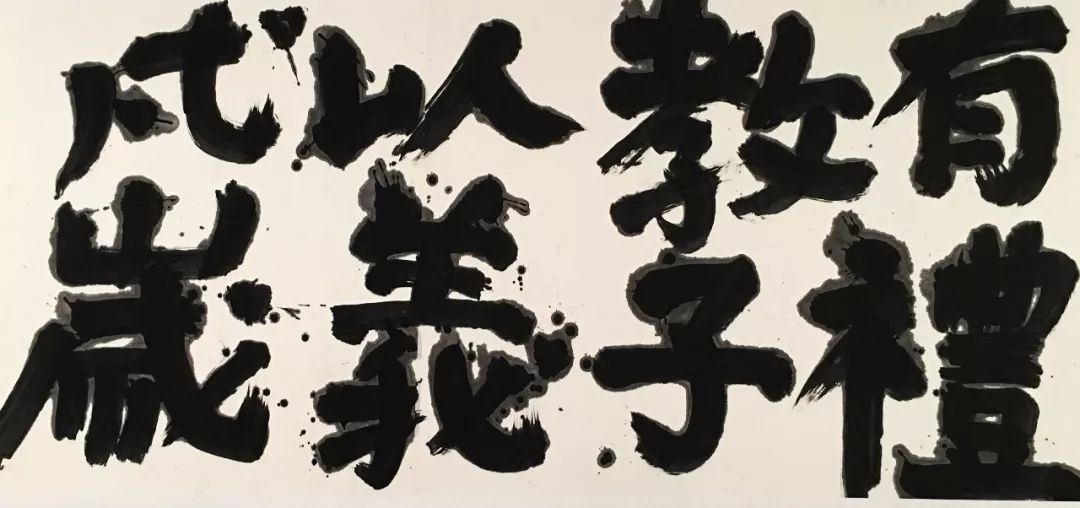 有禮
教子
以義
歲